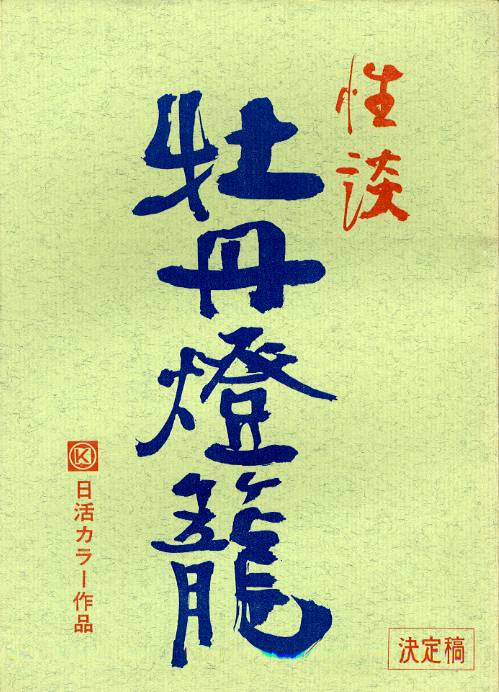 性談
牡丹燈籠
K
日活カラー作品
決定稿